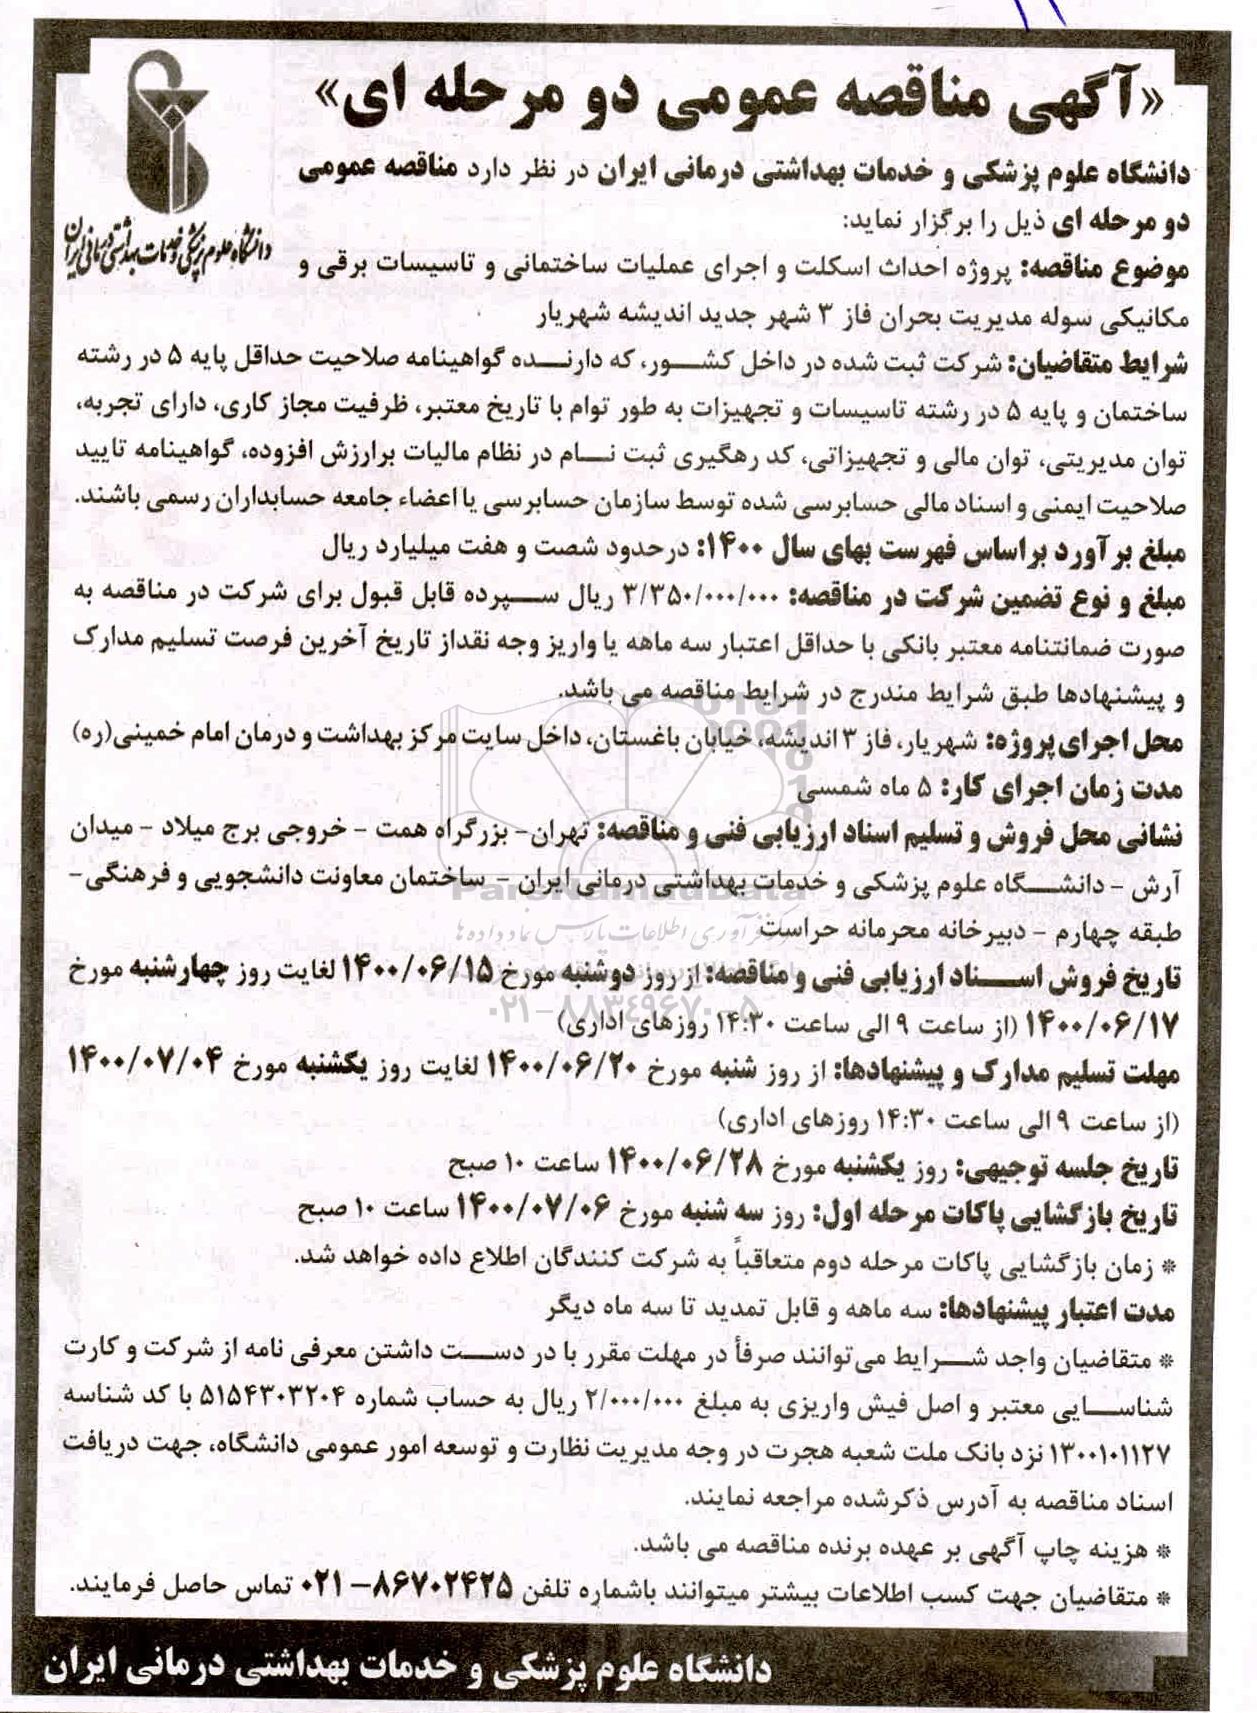 «آگهی مناقصه عمومی دو مرحله ای»
دانشگاه علوم پزشکی و خدمات بهداشتی درمانی ایران
دانشگاه علوم پزشکی و خدمات بهداشتی درمانی ایران در نظر دارد مناقصه عمومی
دو مرحله ای ذیل را برگزار نماید:
موضوع مناقصه: پروژه احداث اسکلت و اجرای عملیات ساختمانی و تاسیسات برقی و
مکانیکی سوله مدیریت بحران فاز ۳ شهر جدید اندیشه شهریار
شرایط متقاضیان: شرکت ثبت شده در داخل کشور، که دارنده گواهینامه صلاحیت حداقل پایه ۵ در رشته
ساختمان و پایه ۵ در رشته تاسیسات و تجهیزات به طور توام با تاریخ معتبر، ظرفیت مجاز کاری، دارای تجربه،
توان مدیریتی، توان مالی و تجهیزاتی، کد رهگیری ثبت نام در نظام مالیات برارزش افزوده، گواهینامه تایید
صلاحیت ایمنی و اسناد مالی حسابرسی شده توسط سازمان حسابرسی یا اعضاء جامعه حسابداران رسمی باشند.
مبلغ برآورد براساس فهرست بهای سال ۱۴۰۰: درحدود شصت و هفت میلیارد ریال
مبلغ و نوع تضمین شرکت در مناقصه: ۳/۳۵۰/۰۰۰/۰۰۰ ریال سپرده قابل قبول برای شرکت در مناقصه به
صورت ضمانتنامه معتبر بانکی با حداقل اعتبار سه ماهه یا واریز وجه نقداز تاریخ آخرین فرصت تسلیم مدارک
و پیشنهادها طبق شرایط مندرج در شرایط مناقصه می باشد.
محل اجرای پروژه: شهریار، فاز ۳ اندیشه، خیابان باغستان، داخل سایت مرکز بهداشت و درمان امام خمینی(ره)
مدت زمان اجرای کار: ۵ ماه شمسی
نشانی محل فروش و تسلیم اسناد ارزیابی فنی و مناقصه: تهران- بزرگراه همت - خروجی برج میلاد - میدان
آرش - دانشگاه علوم پزشکی و خدمات بهداشتی درمانی ایران - ساختمان معاونت دانشجویی و فرهنگی-
ParsNamadData
طبقه چهارم - دبیرخانه محرمانه حراست
تاریخ فروش اسناد ارزیابی فنی و مناقصه: از روز دوشنبه مورخ ۱۴۰۰/۰۶/۱۵ لغایت روز چهارشنبه مورخ
۱۴۰۰/۰۶/۱۷ (از ساعت ۹ الی ساعت ۱۴:۳۰ روزهای اداری)
۰۲۱-۸۸۳۴۹۶۷۰-۵
مهلت تسلیم مدارک و پیشنهادها: از روز شنبه مورخ ۱۴۰۰/۰۶/۲۰ لغایت روز یکشنبه مورخ ۱۴۰۰/۰۷/۰۴
(از ساعت ۹ الی ساعت ۱۴:۳۰ روزهای اداری)
تاریخ جلسه توجیهی: روز یکشنبه مورخ ۱۴۰۰/۰۶/۲۸ ساعت ۱۰ صبح
تاریخ بازگشایی پاکات مرحله اول: روز سه شنبه مورخ ۱۴۰۰/۰۷/۰۶ ساعت ۱۰ صبح
* زمان بازگشایی پاکات مرحله دوم متعاقباً به شرکت کنندگان اطلاع داده خواهد شد.
مدت اعتبار پیشنهادها: سه ماهه و قابل تمدید تا سه ماه دیگر
* متقاضیان واجد شرایط می‌توانند صرفاً در مهلت مقرر با در دست داشتن معرفی نامه از شرکت و کارت
شناسایی معتبر و اصل فیش واریزی به مبلغ ۲/۰۰۰/۰۰۰ ریال به حساب شماره ۵۱۵۴۳۰۳۲۰۴ با کد شناسه
۱۳۰۰۱۰۱۱۲۷ نزد بانک ملت شعبه هجرت در وجه مدیریت نظارت و توسعه امور عمومی دانشگاه، جهت دریافت
اسناد مناقصه به آدرس ذکرشده مراجعه نمایند.
* هزینه چاپ آگهی بر عهده برنده مناقصه می باشد.
* متقاضیان جهت کسب اطلاعات بیشتر میتوانند باشماره تلفن ۸۶۷۰۲۴۲۵-۰۲۱ تماس حاصل فرمایند.
دانشگاه علوم پزشکی و خدمات بهداشتی درمانی ایران